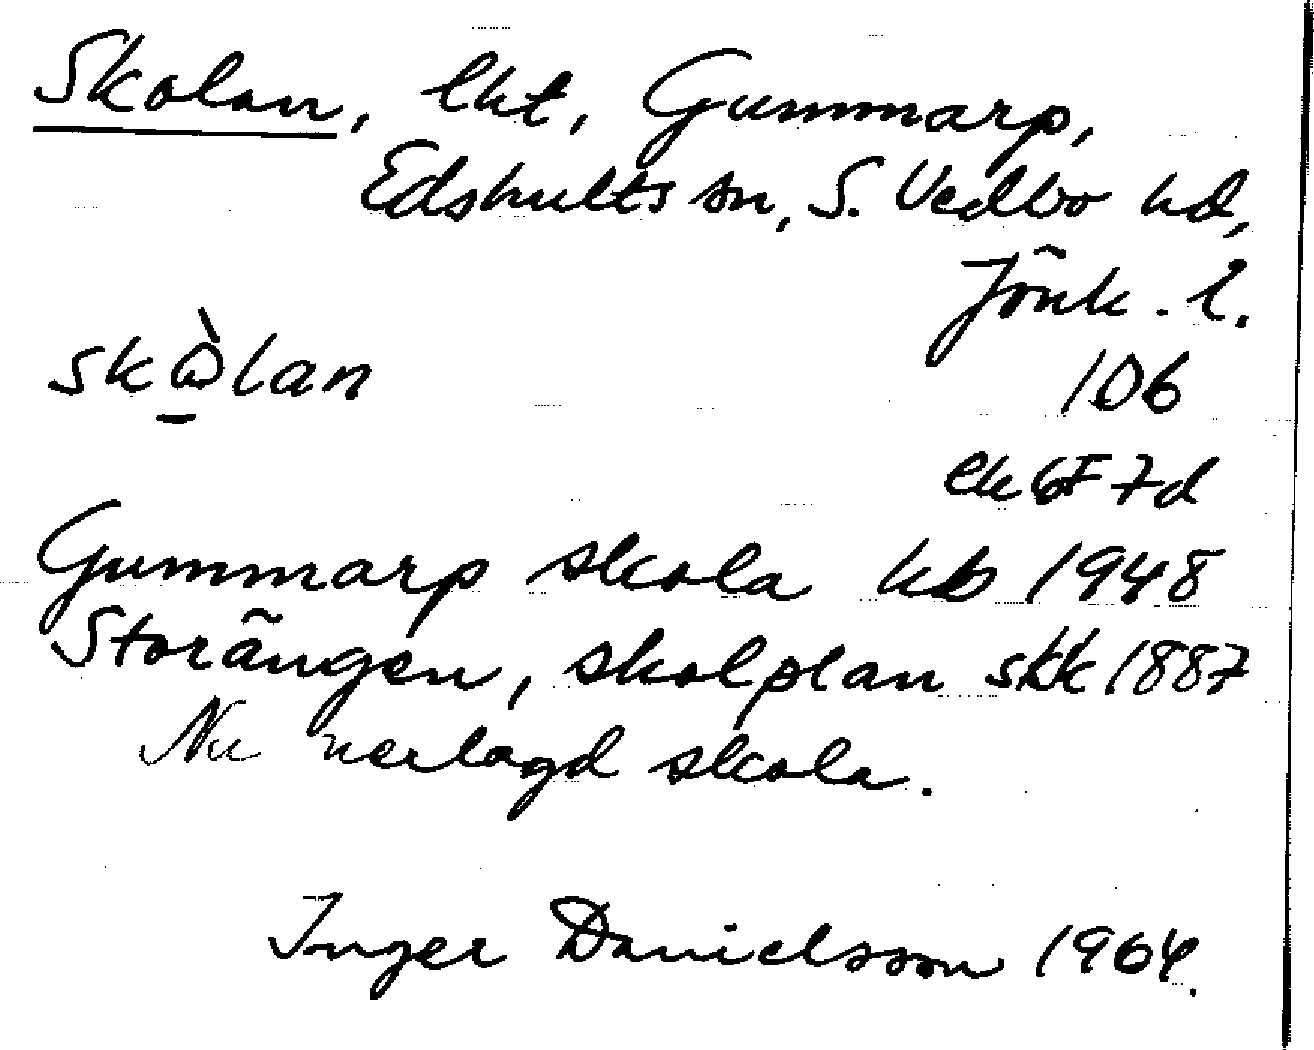 Skolan, lht, Gummarp,
Edshults sn, S. Vedbo hd,
Jönk. l.
skὼlan
106
ek 6F 7d
Gummarp skola kb 1948
Storängen, skolplan skk 1887
Nu nerlagd skola.
Inger Danielsson 1964.